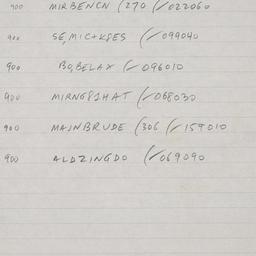 900 MIRBENCN (270 (/022060
900 SE,MIC+KSES (/099040
900 BO,BELAX (/096010
900 MIRN681HAT (/068030
900 MAINBRUDE (306 (/159010
900 ALDZINGDO (/069090